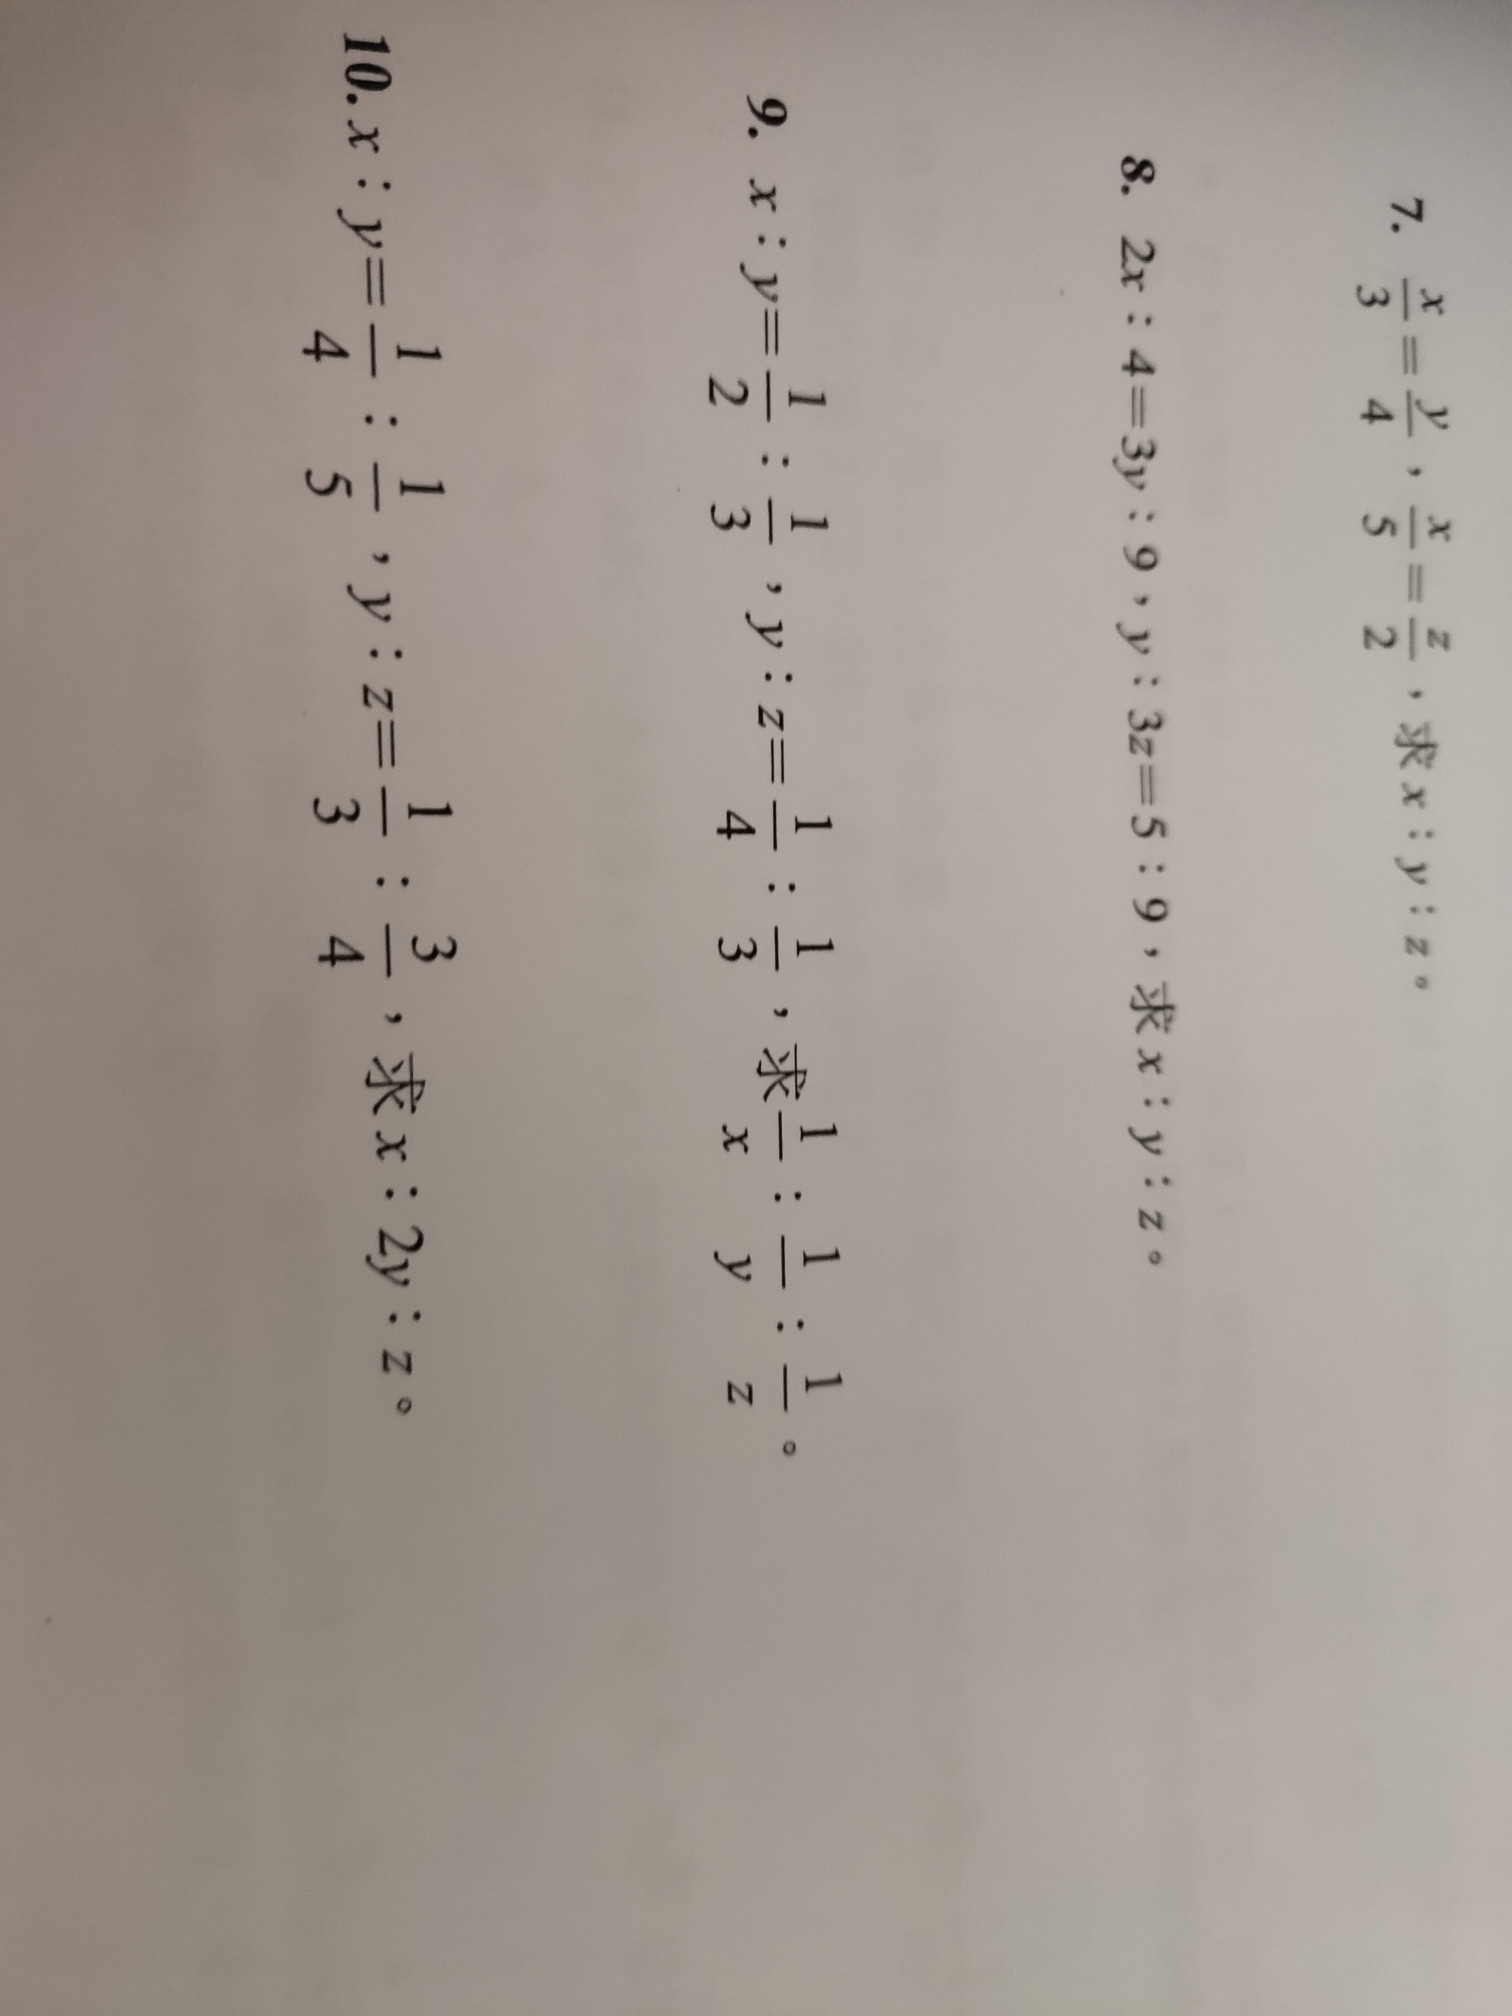 7. x/3=y/4，x/5=z/2，求 x：y：z。
8. 2x：4=3y：9，y：3z=5：9，求 x：y：z。
9. x：y=1/2：1/3，y：z=1/4：1/3，求1/x：1/y：1/z。
10. x：y=1/4：1/5，y：z=1/3：3/4，求 x：2y：z。